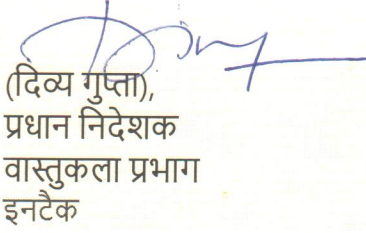 (दिव्य गुप्ता),
प्रधान निदेशक
वास्तुकला प्रभाग
इनटैक